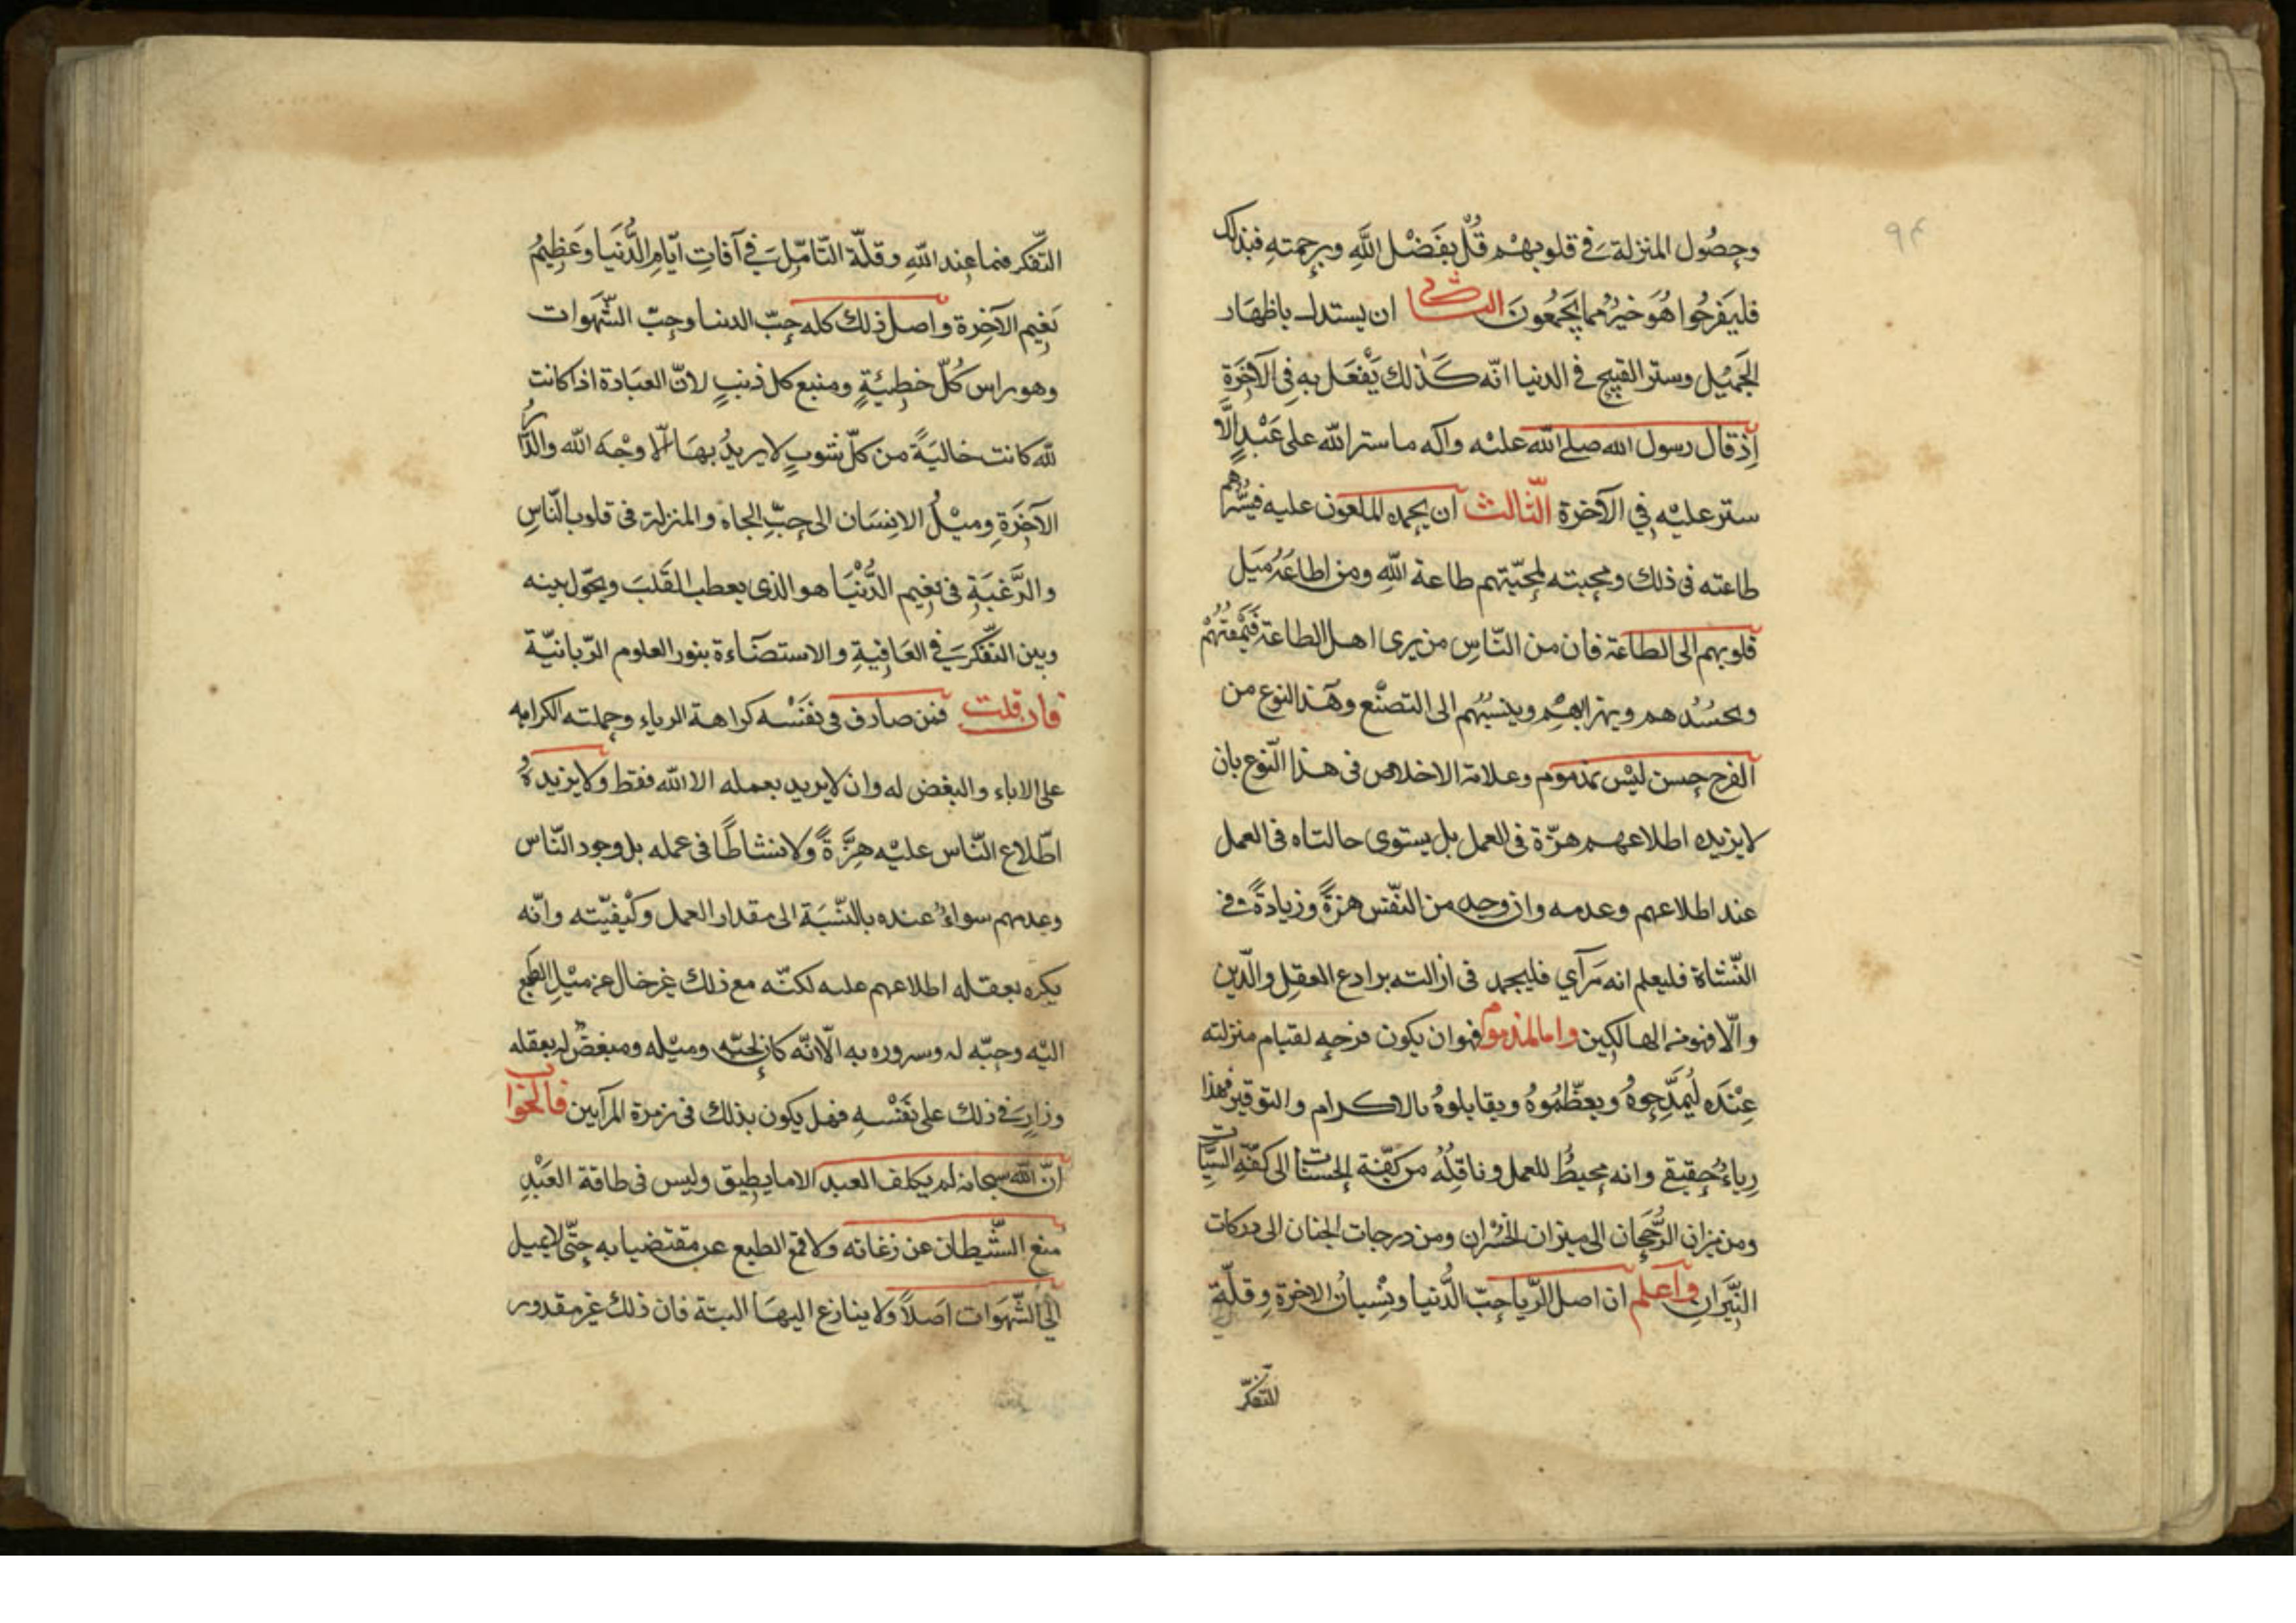 ٩٤
وحصُول المنزلة في قلوبهم قُلْ بفَضْل اللَّهِ وبرحمتهِ فبذلك
فليَفرحُوا هُوَ خيرٌ مما يَجمَعُونَ الثانى ان يستدل باظهَار
الجَميْل وستر القبيح في الدنيا انّه كَذٰلك يَفْعَل بهِ فِى الآخِرَةِ
إذ قال رسول الله صلى الله عليْه وآله ما ستر الله على عَبْدٍ الّا
ستر عليْهِ فِي الآخرة الثّالث ان يحمده المطلعون عليه فيسُرّهم
طاعته فى ذلك ومحبته لمحبّتهم طاعة اللّهِ ومن اطاعَهُ مَيَل
قلوبهم الى الطاعة فان من النّاسِ من يرى اهل الطاعة فَيَمقتُهُمْ
ويحسُدُهم ويهزأ بهم وينسبُهم الى التصنّع وهذا النوع من
الفرح حسن ليْس بمذموم وعلامة الاخلاص فى هذا النّوع بان
لا يزيده اطلاعهم هزّة فى العمل بل يستوى حالتاه فى العمل
عند اطلاعهم وعدمه وان وجد من النّفس هزةً وزيادةً في
النّشاة فليعلم انه مَرآي فليجهد فى ازالته برادع العقل والّدين
والّا فهو من الهالكِين واما المذموم فهو ان يكون فرحه لقيام منزلته
عِنْدَه ليُمَدِّحوهُ ويعظّمُوهُ ويقابلوهُ بالاكرام والتوقير فهذا
رياءٌ حقيقي وانه محيطٌ للعمل وناقِلُهُ من كفّة الحسنات الى كفّةِ السيّاتِ
ومن ميزان الرُّجحَان الى ميزان الخُسْران ومن درجات الجنان الى دركات
النّيَرانِ واعلم ان اصل الرّيا حبّ الدُّنيا ونِسْيانُ الاخرة وقلّة
التّفكّر
التّفكر فيما عِند اللّهِ وقلّة التّامّل في آفاتِ ايّامِ الدُّنيَا وعَظِيمُ
نَعِيم الآخِرة واصل ذلك كله حبّ الدنيا وحبّ الشّهَوات
وهو راس كُلّ خطِيْئةٍ ومنبع كل ذنبٍ لانّ العبَادة اذا كانت
للّه كانت خاليَةً من كلّ شوبٍ لا يريدُ بهَا الّا وَجْهَ الله والدّار
الآخِرَةِ وميْلُ الانسَان الى حبّ الجاه والمنزلة فى قلوب النّاسِ
والرَّغبَةِ فى نعِيم الدُّنْيَا هو الذى يعطب القَلبَ ويحَوّل بينه
وبين التّفكر في العَاقِبَةِ والاستضَاءة بنور العلوم الرّبانيّة
فان قلت فمن صادف فى نفَسْه كراهة الرياء وحملته الكراهه
على الاباء والبغض له وان لا يريد بعمله الا الله فقط ولا يزيدهُ
اطّلاع النّاس عليْه هِزَّةً ولا نشاطًا فى عمله بل وجود النّاس
وعدمهم سواءٌ عنده بالنّسْبَة الى مقدار العمل وكَيْفيّته وانّه
يكره بعقله اطلاعهم عليه لكنّه مع ذلك غير خال عن ميْلِ الطبع
اليْه وحبّه له وسروره به الّا انّه كان لحبّه وميْله ومبغضٌ له بعقله
وزارٍ في ذلك على نَفْسْهِ فهل يكون بذلك فى زمرة المرآيين فالجَوا
انّ اللّه سبحانه لم يكلف العبد الا ما يطيق وليس فى طاقة العَبْدِ
منع الشّيطان عن نزغاته ولا قمع الطبع عن مقتضياته حتّى لا يميل
الى الشّهَوات اصَلاً ولا ينازع اليهَا البتة فان ذلك غير مقدور